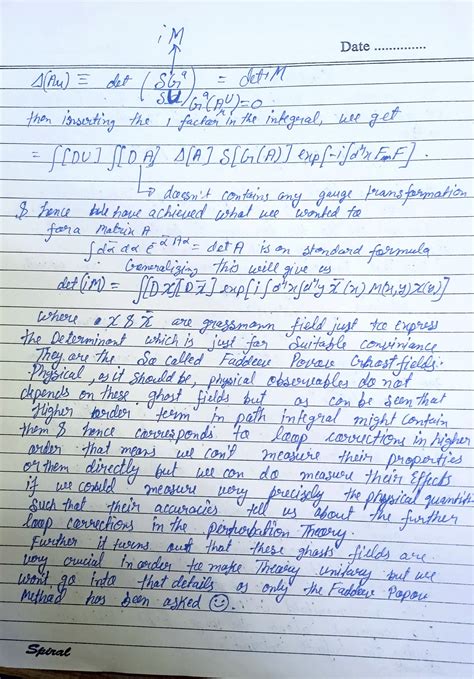 iM
Date ..............
Δ(Aμ) ≡ det (δGᵃ/δU)_Gᵃ(Aᵁ)=0 = det M
then inserting the 1 factor in the integral, we get
= ∫[DU] ∫[DA] Δ[A] S[G(A)] exp[-i∫d⁴x F F].
↳ doesn't contains any gauge transformation
& hence we have achieved what we wanted to
for a Matrix A
∫dᾱ dα e^-ᾱAα = det A is an standard formula
Generalizing this will give us
det(iM) = ∫[Dχ][Dχ̄] exp[i∫d⁴x∫d⁴y χ̄(x) M(x,y) χ(y)]
where χ & χ̄ are grassmann field just to express
the Determinant which is just for suitable conviniance
They are the So called Faddeev Povov Ghost fields.
Physical, as it should be, physical observables do not
depends on these ghost fields but as can be seen that
Higher order term in path integral might contain
them & hence corresponds to loop corrections in higher
order that means we can't measure their properties
or them directly but we can do measure their Effects
if we could measure very precisely the physical quantit
Such that their accuracies tell us about the further
loop corrections in the Perturbation Theory.
Further it turns out that these ghosts fields are
very crucial in order to make Theory unitary but we
won't go into that details as only the Faddeev Popov
Method has been asked ☺.
Spiral